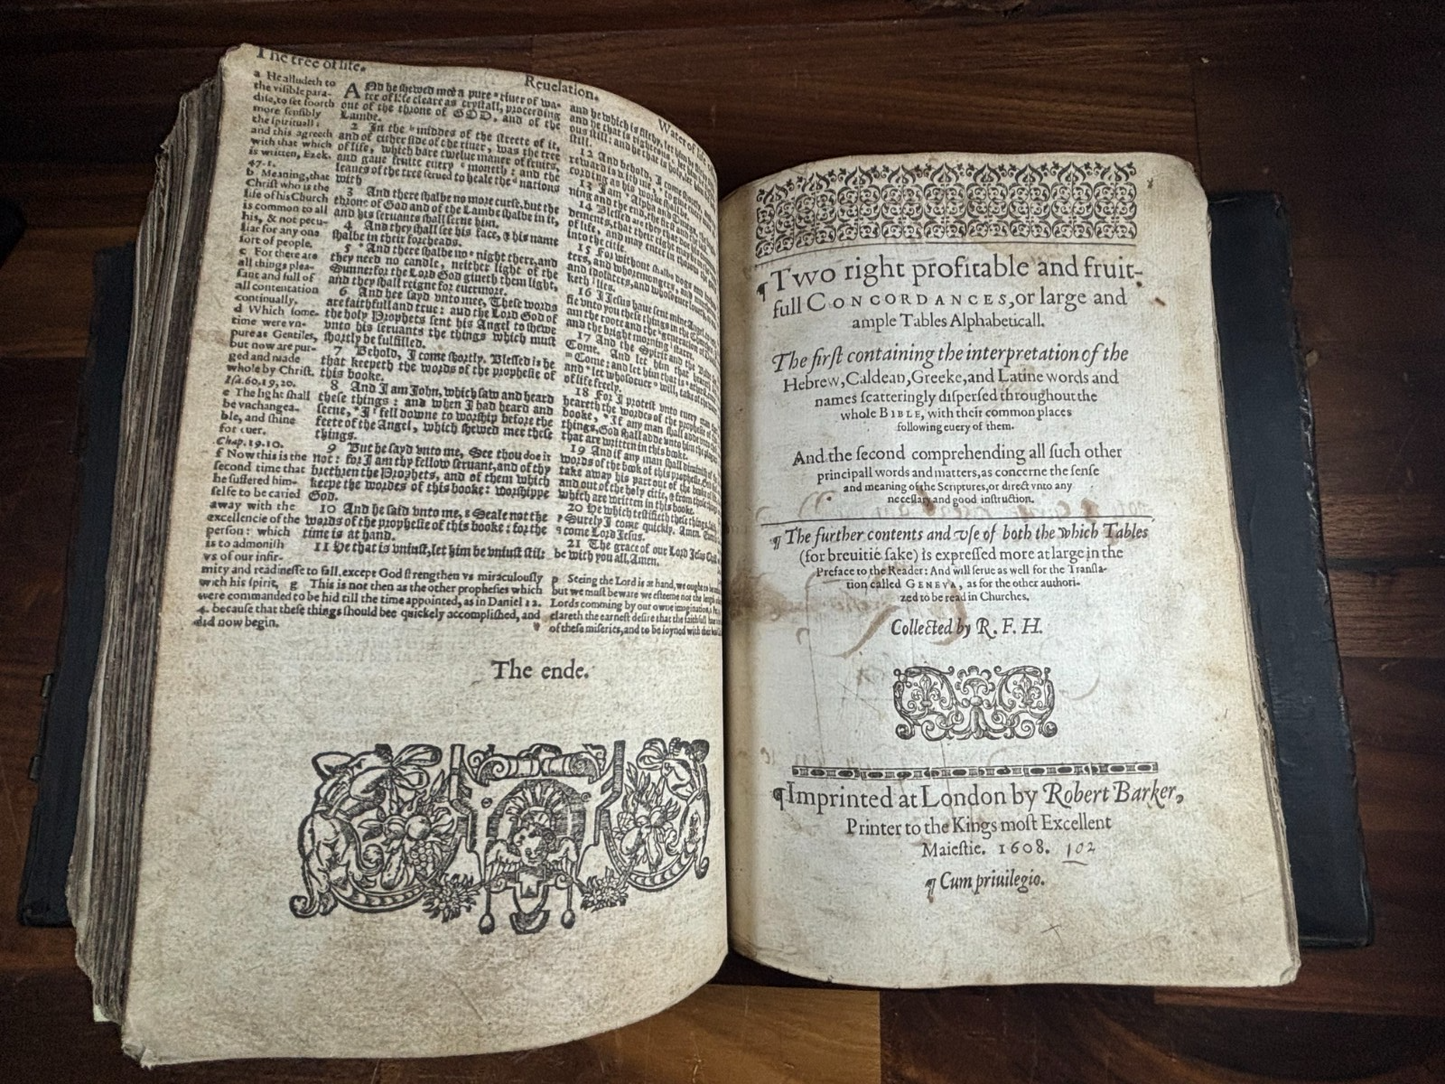 The tree of life.
Reuelation.
Water of life
a He alludeth to
the visible para-
dise, to set foorth
more sensibly
the spirituall:
and this agreeth
with that which
is written, Ezek.
47.1.
b Meaning, that
Christ who is the
life of his Church
is common to all
his, & not pecu-
liar for any one
sort of people.
c For there are
all things plea-
sant and full of
all contentation
continually.
d Which some-
time were vn-
pure as Gentiles,
but now are pur-
ged and made
whole by Christ.
Isa.60.19,20.
e The light shall
be vnchangea-
ble, and shine
for euer.
Chap.19.10.
f Now this is the
second time that
he suffered him-
selfe to be caried
away with the
excellencie of the
person: which
is to admonish
vs of our infir-
mity and readinesse to fall, except God strengthen vs miraculously
with his spirit, g This is not then as the other prophesies which
were commanded to be hid till the time appointed, as in Daniel 12.
4. because that these things should bee quickely accomplished, and
did now begin.
And he shewed mee a pure riuer of wa-
ter of life cleare as crystall, proceeding
out of the throne of GOD, and of the
Lambe.
2 In the middes of the streete of it,
and of either side of the riuer, was the tree
of life, which bare twelue maner of fruits,
and gaue fruite euery moneth: and the
leaues of the tree serued to heale the nations
with
3 And there shalbe no more curse, but the
throne of God and of the Lambe shalbe in it,
and his seruants shall serue him.
4 And they shall see his face, & his name
shalbe in their foreheads.
5 And there shalbe no night there, and
they need no candle, neither light of the
Sunne: for the Lord God giueth them light,
and they shall reigne for euermore.
6 And hee sayd vnto mee, These words
are faithfull and true: and the Lord God of
the holy Prophets sent his Angel to shewe
vnto his seruants the things which must
shortly be fulfilled.
7 Behold, I come shortly. Blessed is he
that keepeth the words of the prophesie of
this booke.
8 And I am John, which saw and heard
these things: and when I had heard and
seene, I fell downe to worship before the
feete of the Angel, which shewed mee these
things.
9 But he sayd vnto me, See thou doe it
not: for I am thy fellow seruant, and of thy
brethren the Prophets, and of them which
keepe the wordes of this booke: worshippe
God.
10 And he said vnto me, Seale not the
words of the prophesie of this booke: for the
time is at hand.
11 He that is vniust, let him be vniust still
and he which is filthy, let him be
and he that is righteous, let him be
ous still: and he that is holy, let him be
still.
12 And behold, I come shortly,
reward is with me,
cording as his worke shall
13 I am Alpha and
ning and the end, the first and the
14 Blessed are they that doe
dements, that their right may be
of life, and may enter in
into the citie.
15 For without shalbe dogs and
ters, and whoremongers, and
and idolaters, and whosoeuer
keth lies.
16 I Jesus haue sent mine Angel
fie vnto you these things in the
am the roote and the generation
and the bright morning starre.
17 And the Spirit and the
Come. And let him that
Come: and let him that is
and let whosoeuer will, take of
of life freely.
18 For I protest vnto euery man
heareth the wordes of the prophesie
booke, If any man shall adde
things, God shall adde vnto him
that are written in this booke.
19 And if any man shall diminish
words of the book of this prophesie
take away his part out of the booke
and out of the holy citie, & from
which are written in this booke.
20 He which testifieth these things,
Surely I come quickly. Amen.
come Lord Jesus.
21 The grace of our Lord Jesus
be with you all, Amen.
p Seeing the Lord is at hand, we ought to
but we must beware we esteeme not the
Lords comming by our owne imagination,
clareth the earnest desire that the faithfull
of these miseries, and to be ioyned with
The ende.
¶ Two right profitable and fruit-
full CONCORDANCES, or large and
ample Tables Alphabeticall.
The first containing the interpretation of the
Hebrew, Caldean, Greeke, and Latine words and
names scatteringly dispersed throughout the
whole BIBLE, with their common places
following euery of them.
And the second comprehending all such other
principall words and matters, as concerne the sense
and meaning of the Scriptures, or direct vnto any
necessary and good instruction.
¶ The further contents and vse of both the which Tables
(for breuitie sake) is expressed more at large in the
Preface to the Reader: And will serue as well for the Transla-
tion called GENEVA, as for the other authori-
zed to be read in Churches,
Collected by R. F. H.
¶ Imprinted at London by Robert Barker,
Printer to the Kings most Excellent
Maiestie. 1608. 102
¶ Cum priuilegio.